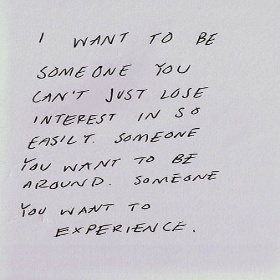 I WANT TO BE
SOMEONE YOU
CAN'T JUST LOSE
INTEREST IN SO
EASILY. SOMEONE
YOU WANT TO BE
AROUND. SOMEONE
YOU WANT TO
EXPERIENCE.